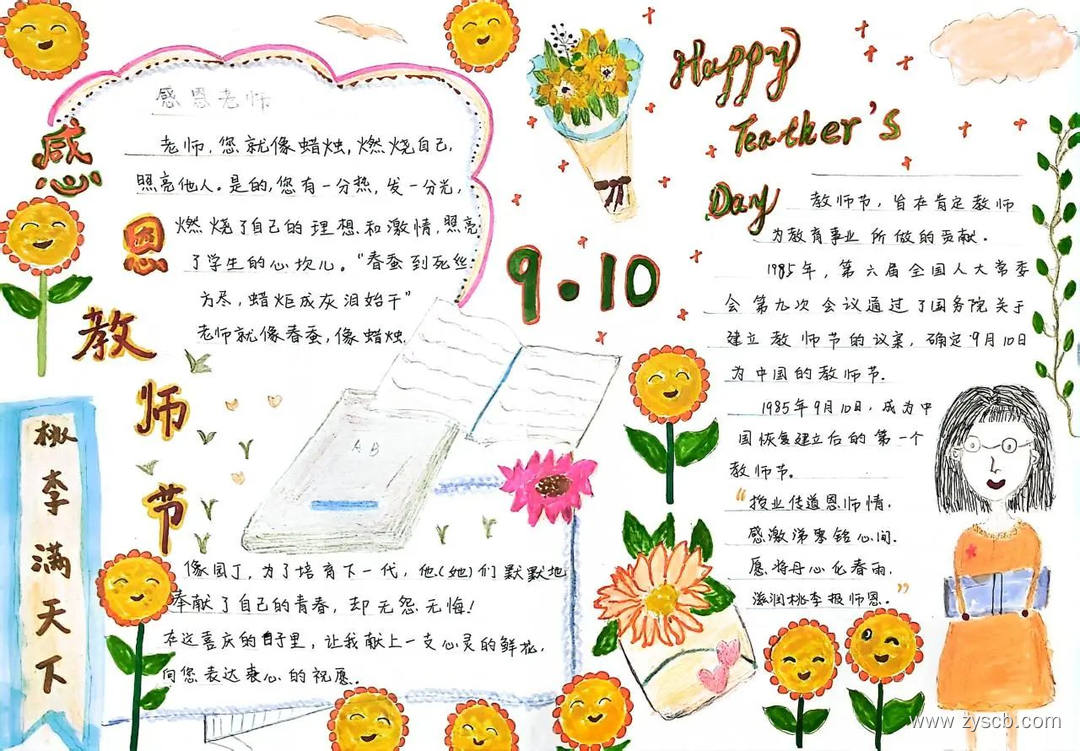 感恩教师节
桃李满天下
感恩老师
老师,您就像蜡烛,燃烧自己,
照亮他人。是的,您有一分热,发一分光,
燃烧了自己的理想和激情,照亮
了学生的心坎儿。"春蚕到死丝
方尽,蜡炬成灰泪始干"
老师就像春蚕,像蜡烛
AB
像园丁,为了培育下一代,他(她)们默默地
奉献了自己的青春,却无怨无悔!
在这喜庆的日子里,让我献上一支心灵的鲜花,
向您表达衷心的祝愿。
9.10
Happy
Teather's
Day
教师节,旨在肯定教师
为教育事业所做的贡献.
1985年,第六届全国人大常委
会第九次会议通过了国务院关于
建立教师节的议案,确定9月10日
为中国的教师节.
1985年9月10日,成为中
国恢复建立后的第一个
教师节.
"授业传道恩师情,
感激涕零铭心间.
愿将丹心化春雨,
滋润桃李报师恩."
www.zyscb.com